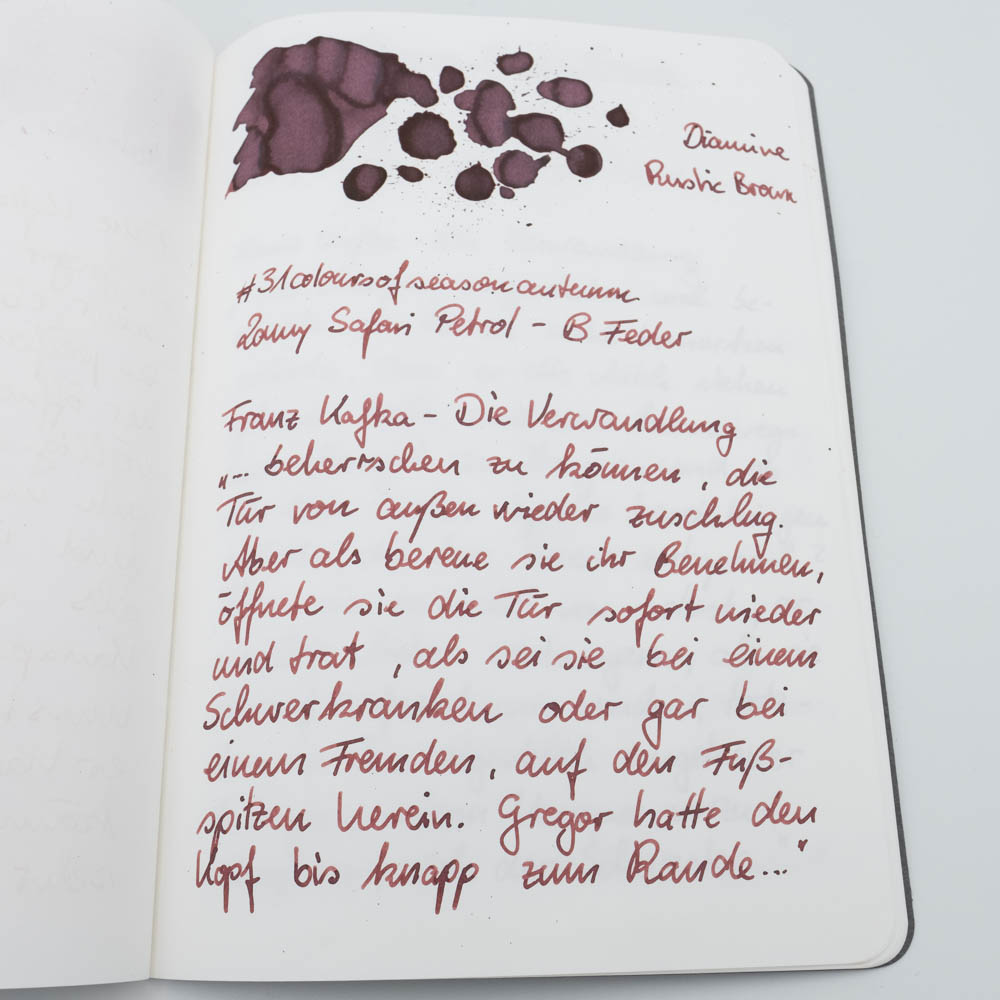 Diamine
Rustic Brown
#31coloursofseasonautumn
Lamy Safari Petrol - B Feder
Franz Kafka - Die Verwandlung
„... beherrschen zu können, die
Tür von außen wieder zuschlug.
Aber als bereue sie ihr Benehmen,
öffnete sie die Tür sofort wieder
und trat, als sei sie bei einem
Schwerkranken oder gar bei
einem Fremden, auf den Fuß-
spitzen herein. Gregor hatte den
Kopf bis knapp zum Rande..."